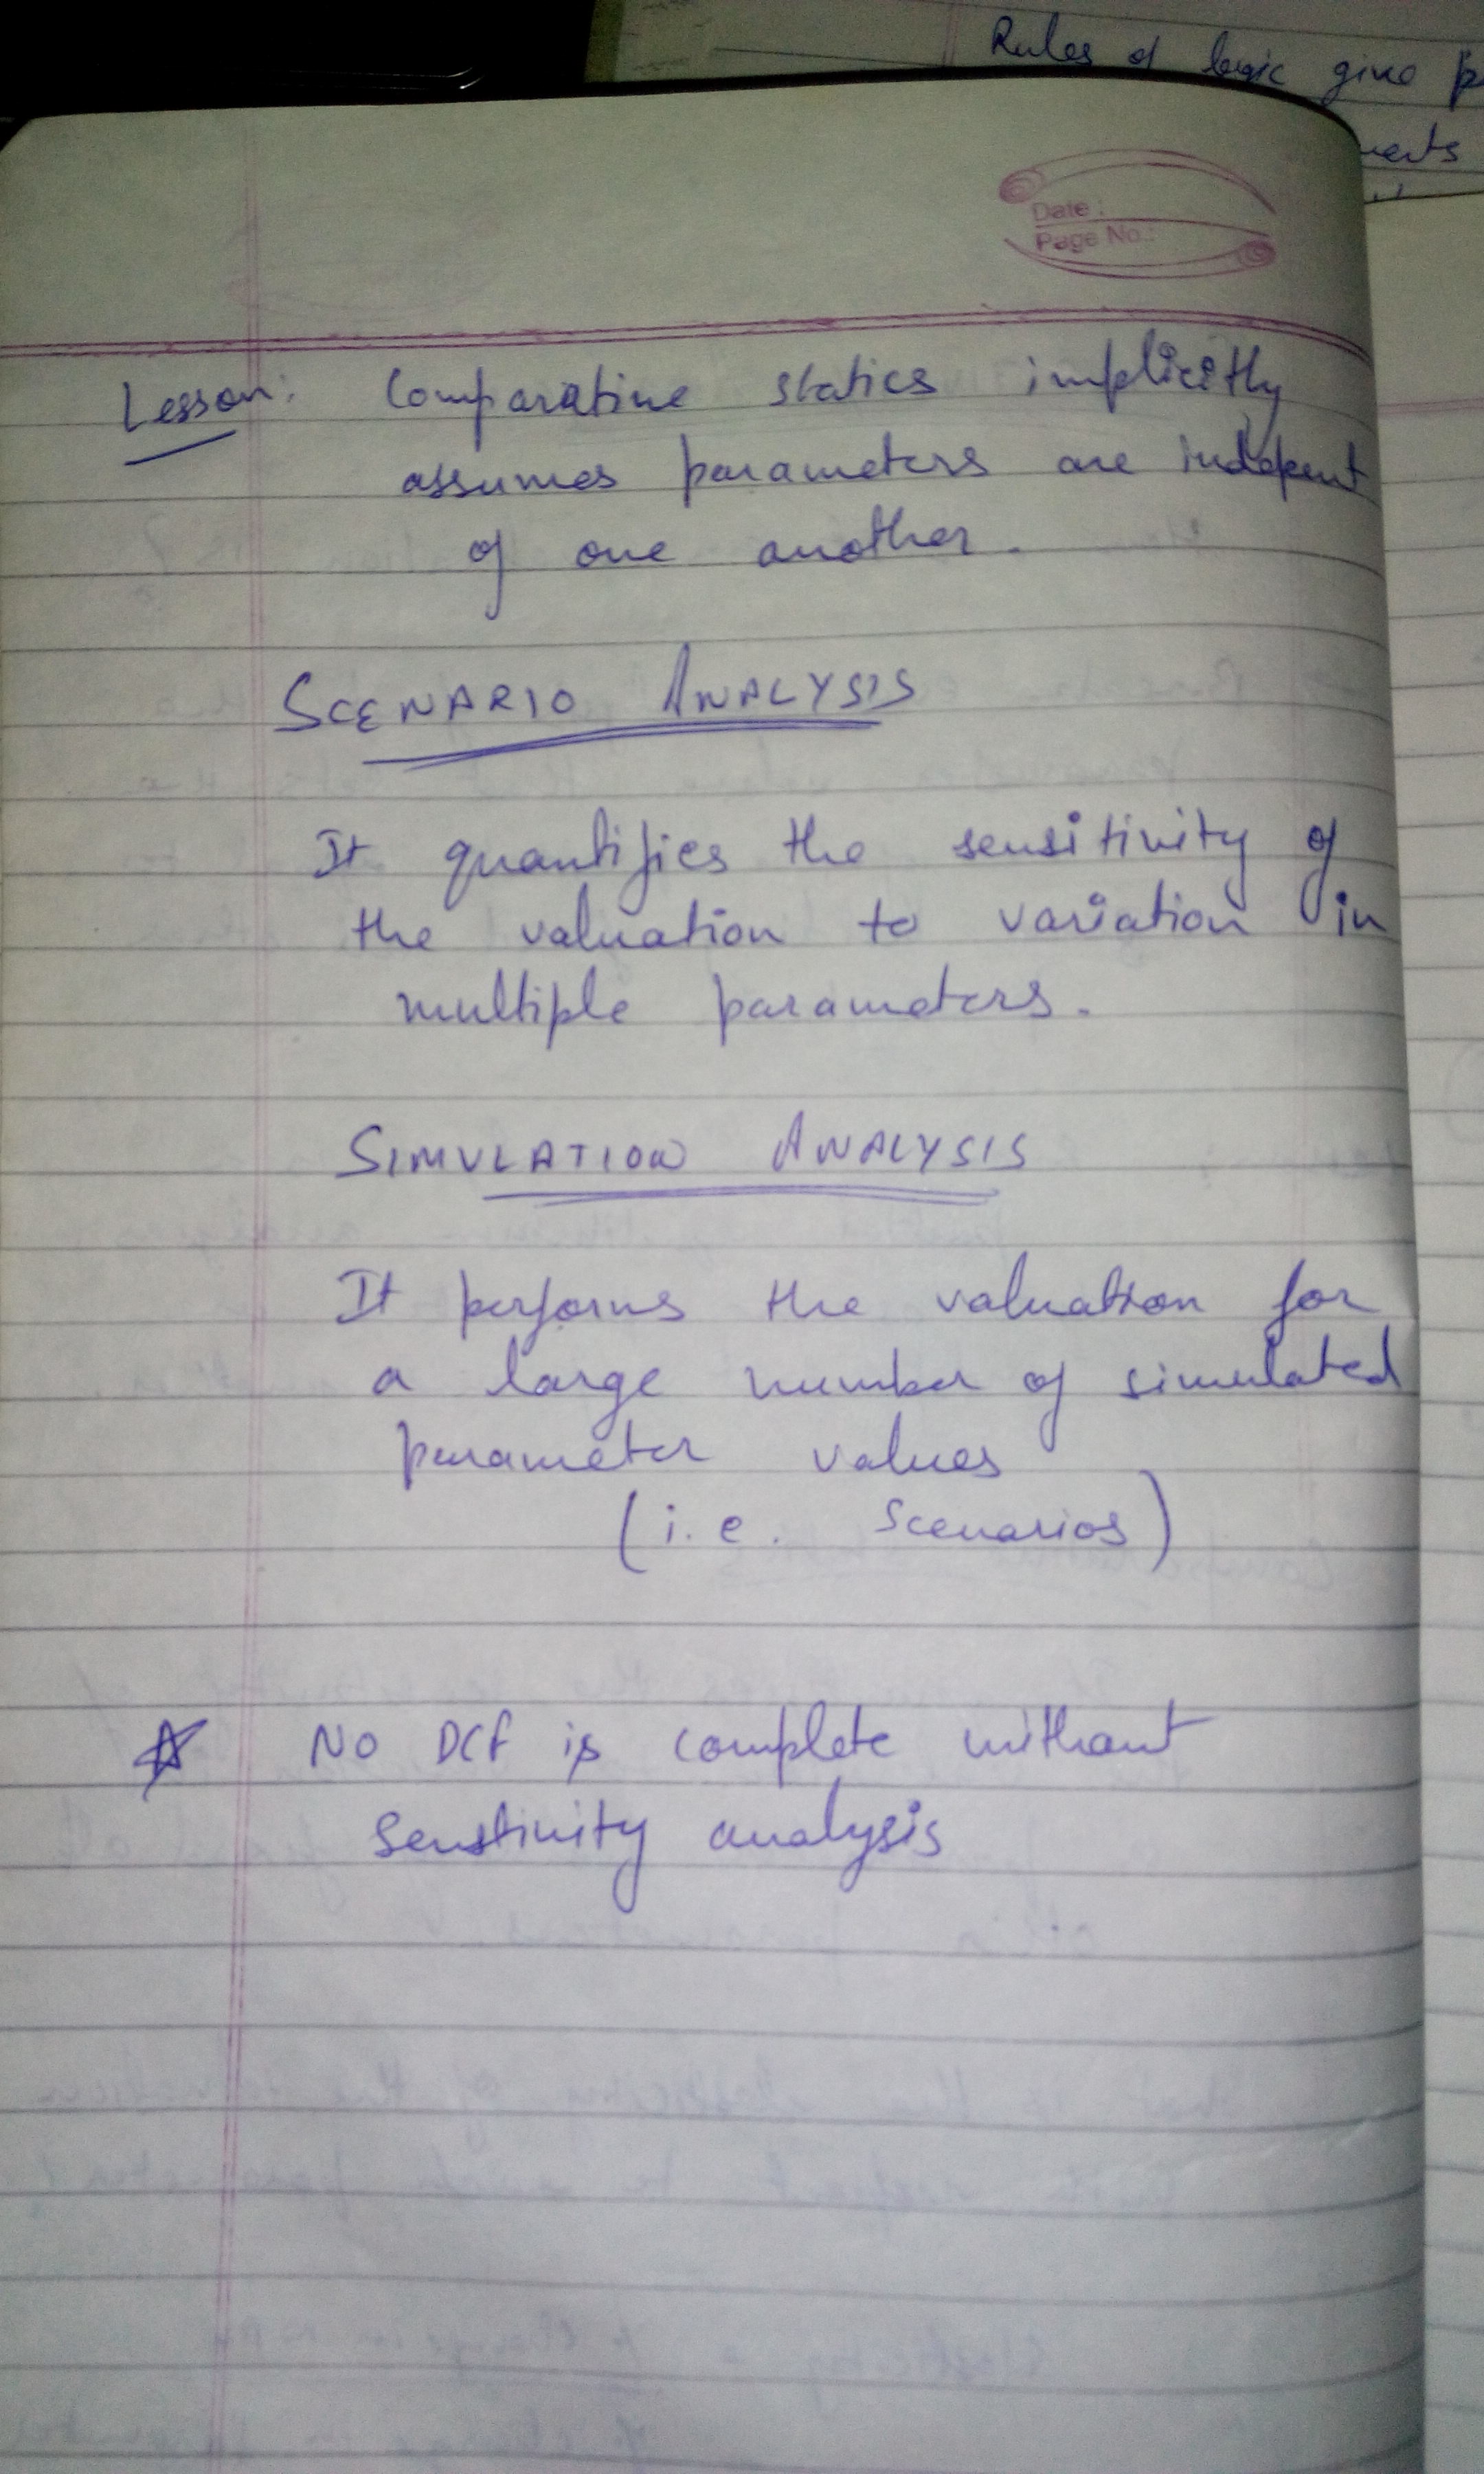 Rules of logic give
Date :
Page No.:
Lesson: Comparative statics implicitly
assumes parameters are indepent
of one another.
SCENARIO ANALYSIS
It quantifies the sensitivity of
the valuation to variation in
multiple parameters.
SIMULATION ANALYSIS
It performs the valuation for
a large number of simulated
parameter values
(i.e. Scenarios)
NO DCF is complete without
Senstivity analysis